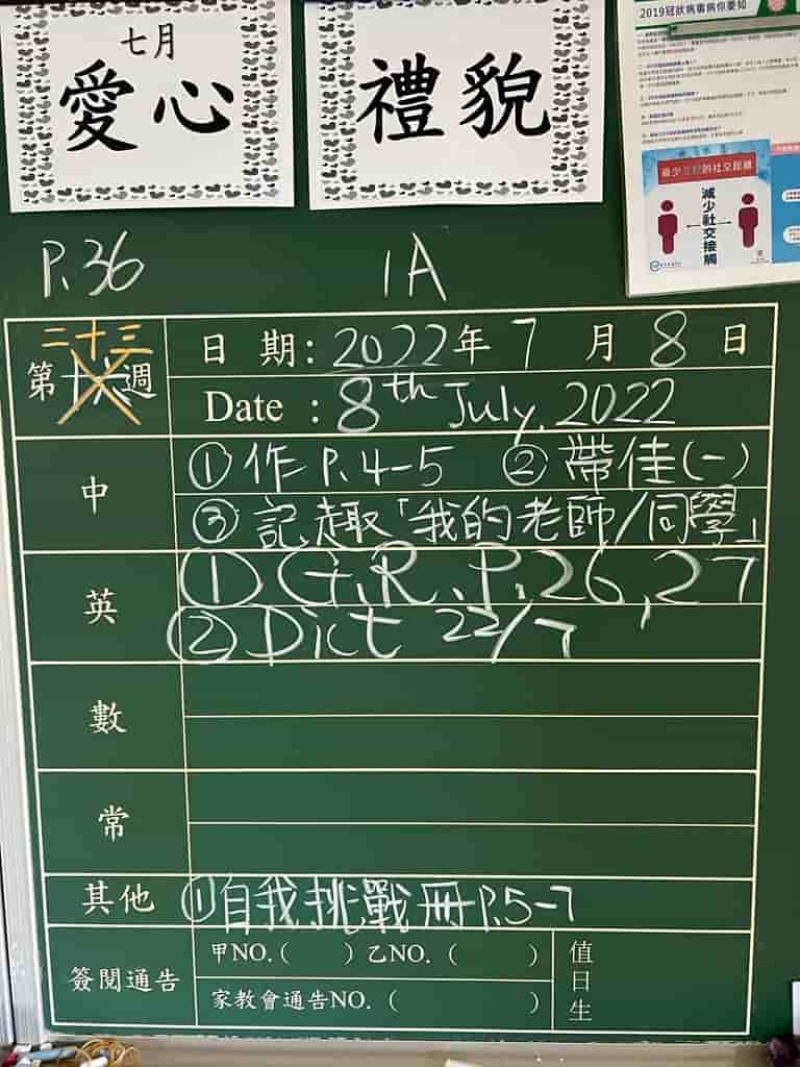 七月
愛心
禮貌
2019冠狀病毒病你要知
減少社交接觸
P.36
1A
二十三
第十六週
日 期: 2022年 7 月 8 日
Date : 8th July, 2022
中
①作 P.4-5 ②帶佳(一)
③記趣「我的老師/同學」
英
① G.R. P.26, 27
② Dict 22/7
數
常
其他
①自我挑戰冊P.5-7
簽閱通告
甲NO.( ) 乙NO. ( )
家教會通告NO. ( )
值日生